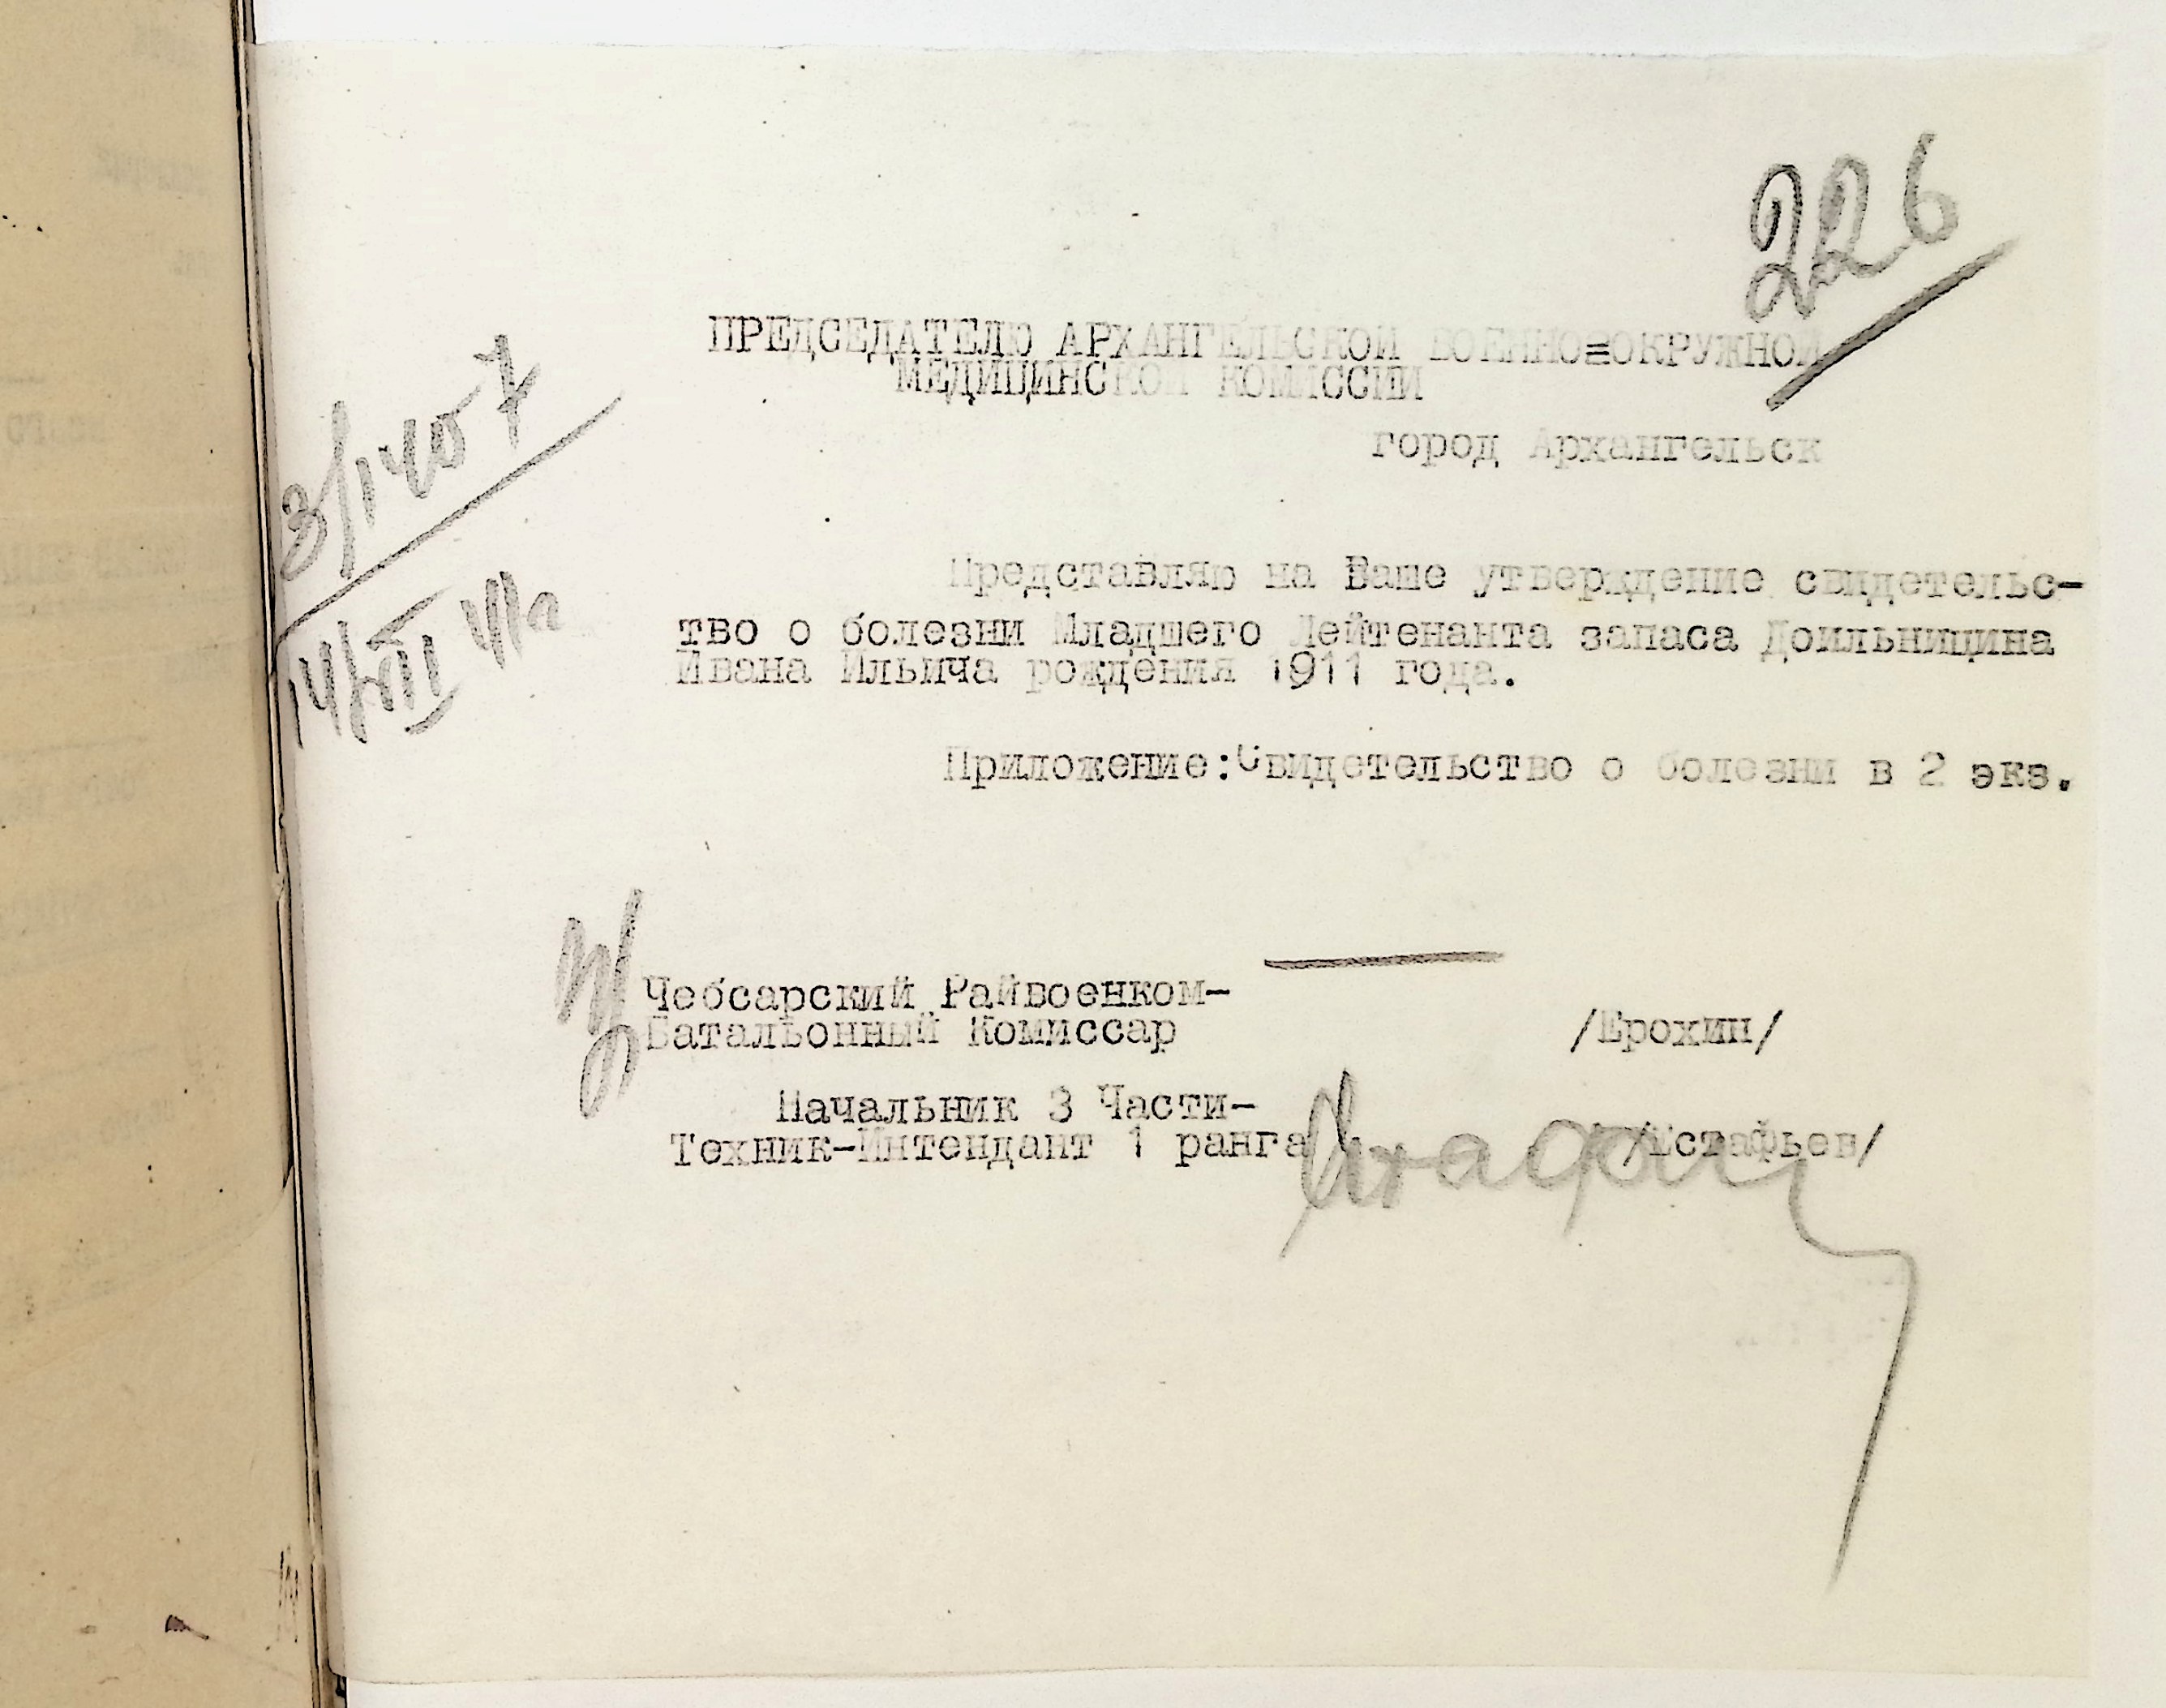 226
ПРЕДСЕДАТЕЛЮ АРХАНГЕЛЬСКОЙ ВОЕННО=ОКРУЖНОЙ
МЕДИЦИНСКОЙ КОМИССИИ
город Архангельск
3/14057
14/VII 41г
Представляю на Ваше утверждение свидетельс-
тво о болезни Младшего Лейтенанта запаса Доильницина
Ивана Ильича рождения 1911 года.
Приложение:Свидетельство о болезни в 2 экз.
Чебсарский Райвоенком-
Батальонный Комиссар /Ерохин/
Начальник 3 Части-
Техник-Интендант 1 ранга /Естафьев/